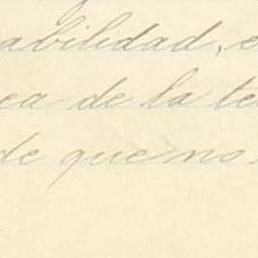 abilidad, e
ea de la te
de que no